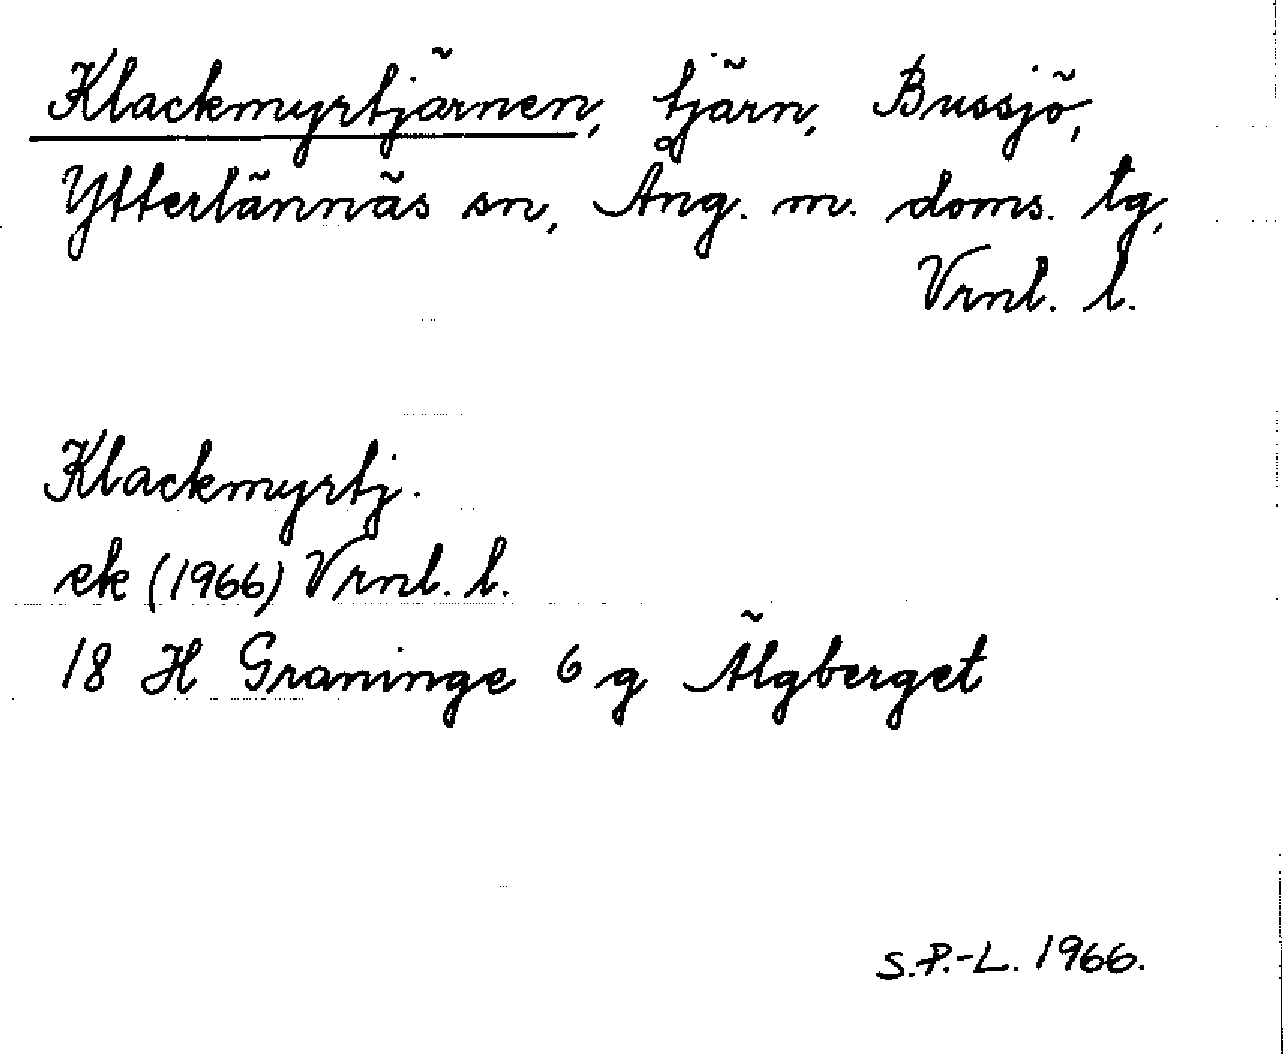 Klackmyrtjärnen, tjärn, Bussjö,
Ytterlännäs sn, Ång. m. doms. tg,
Vrnl. l.
Klackmyrtj.
ek (1966) Vrnl. l.
18 H Graninge 6 g Älgberget
S.P.-L. 1966.